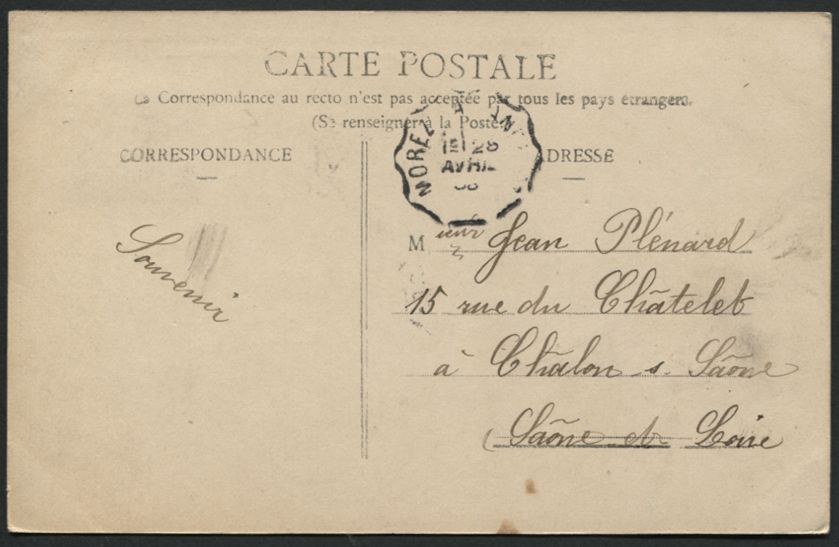 CARTE POSTALE
La Correspondance au recto n'est pas acceptée par tous les pays étrangers.
(Se renseigner à la Poste.)
CORRESPONDANCE
ADRESSE
MOREZ
28
AVRIL
08
Souvenir
Mieur Jean Plénard
15 rue du Châtelet
à Châlon s. Saône
(Saône et Loire